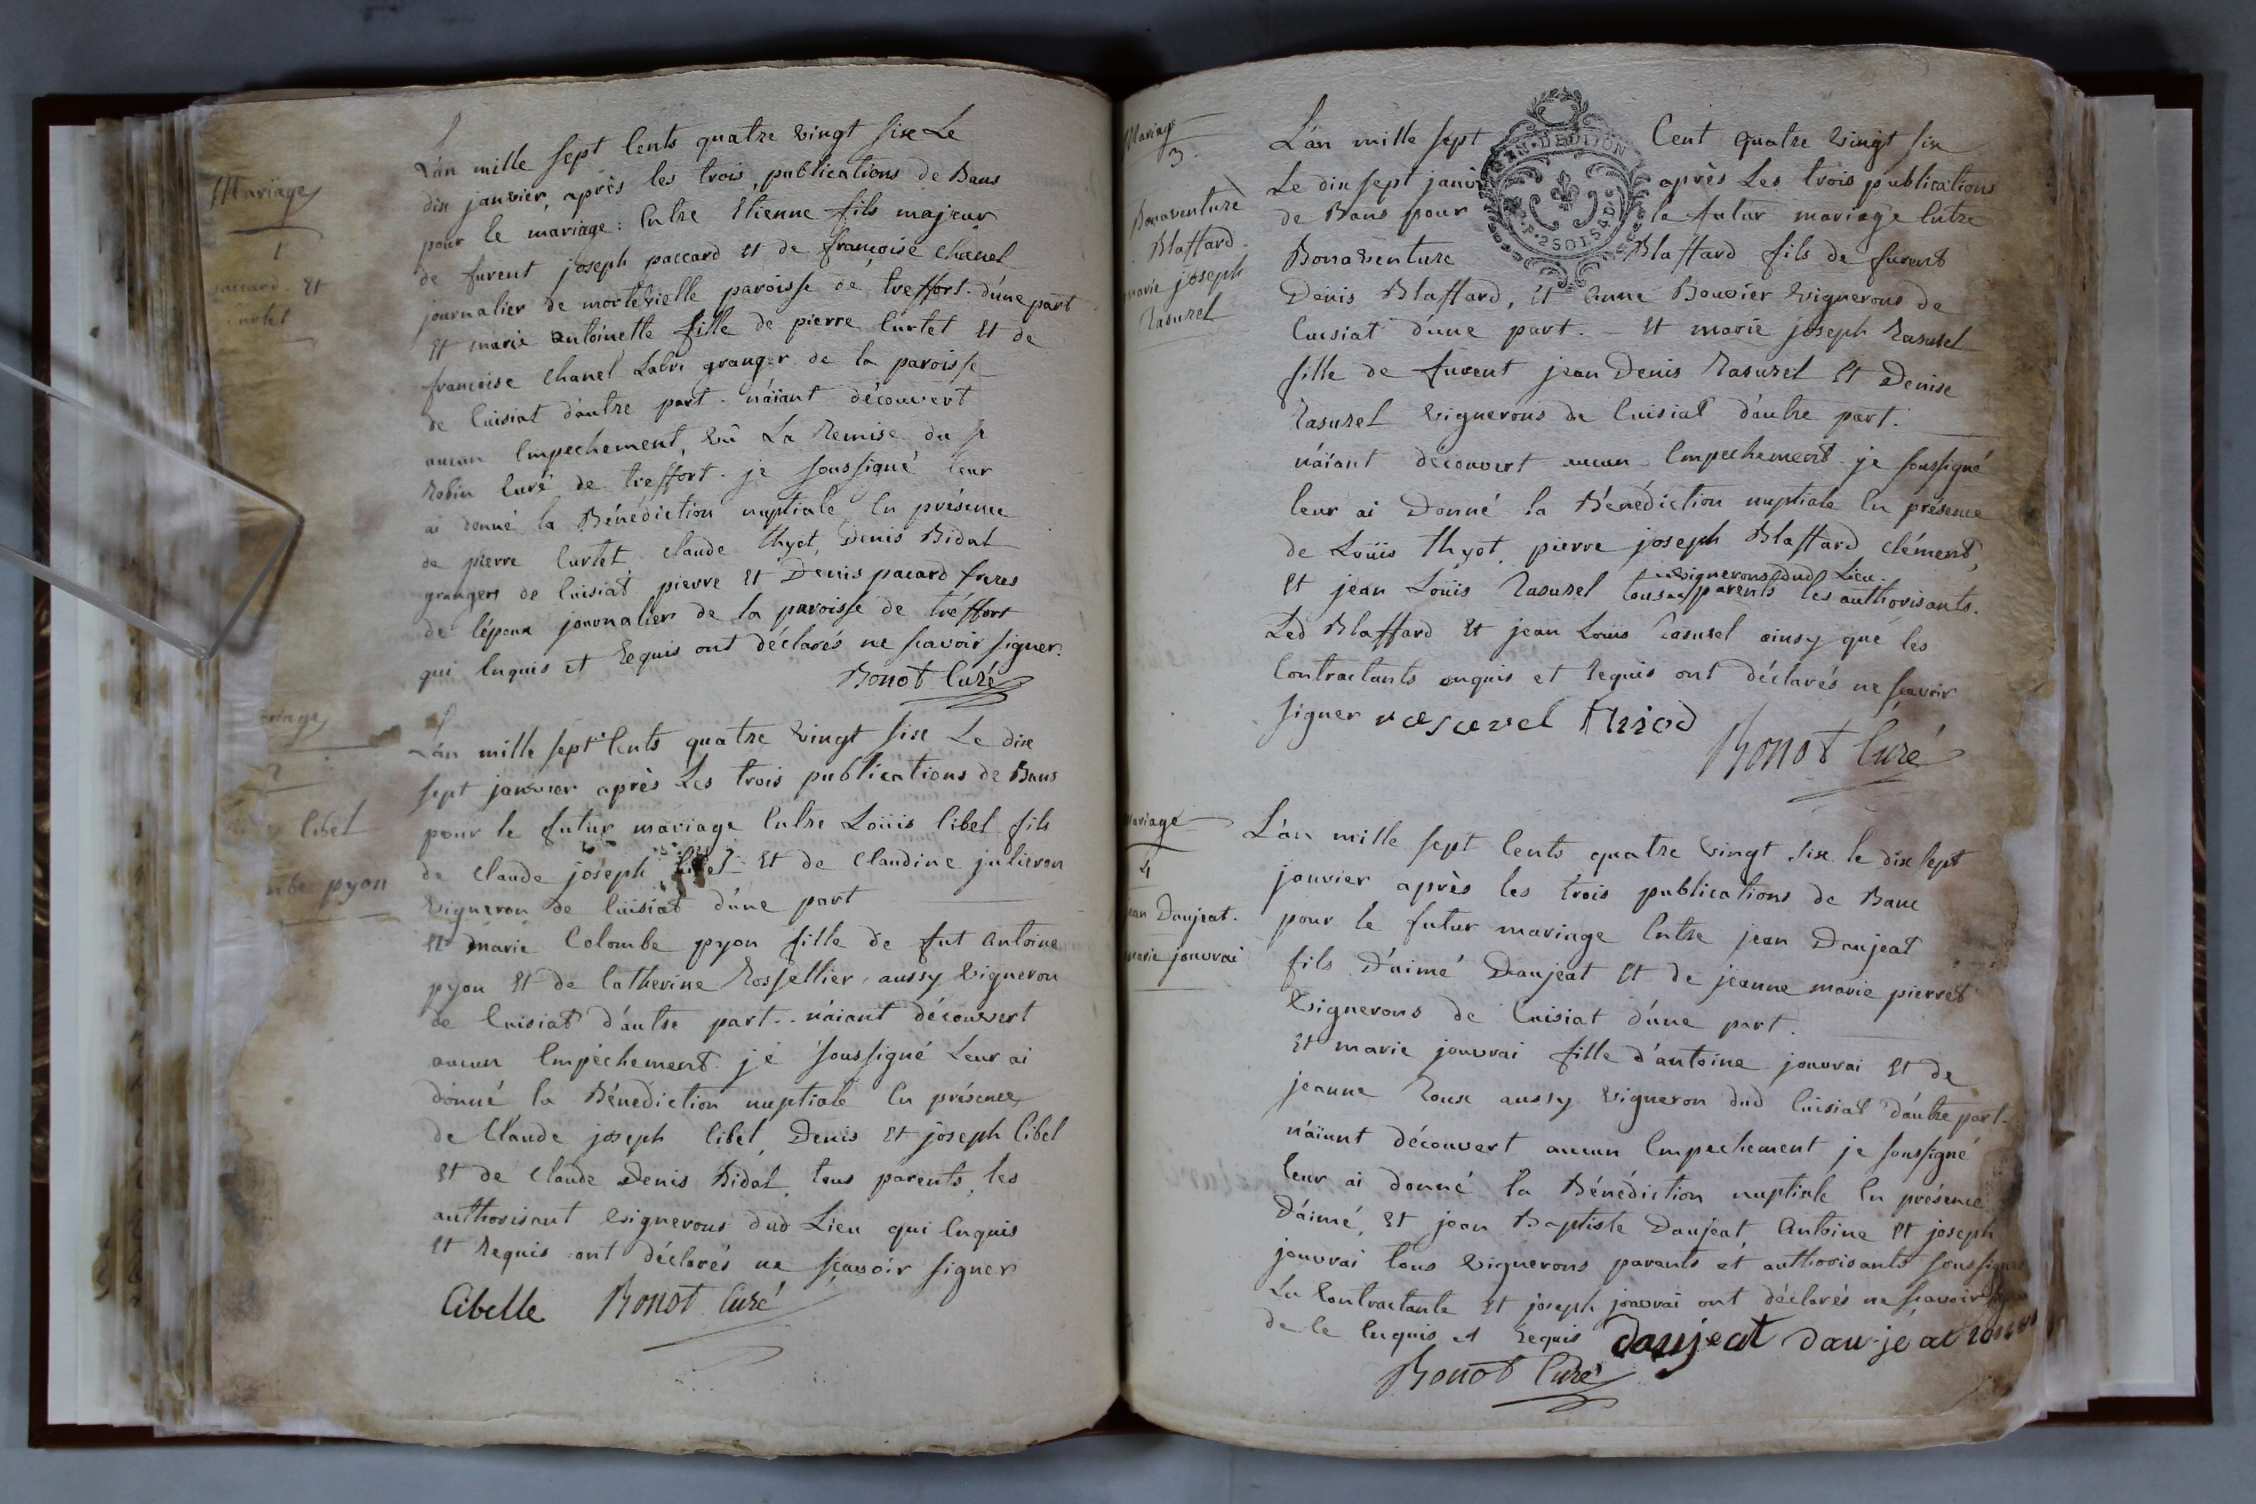 Mariage
1
paccard Et
Curtet
L'an mille sept Cents quatre vingt six Le
dix janvier, après les trois publications de Bans
pour le mariage : Entre Etienne fils majeur
de furent joseph paccard et de françoise Chanel
journalier de mortevielle paroisse de treffort d'une part
Et marie antoinette fille de pierre Curtet Et de
françoise Chanel Labr. granger de la paroisse
de Cuisiat d'autre part. n'aiant découvert
aucun Empechement, Vû La Remise du sr
Robin Curé de treffort. je soussigné leur
ai donné la Bénédiction nuptiale En présence
de pierre Curtet Claude thyot, Denis Bidal
grangers de Cuisiat pierre Et Denis pacard freres
de l'époux journaliers de la paroisse de tréffort
qui Enquis et Requis ont déclarés ne scavoir signer.
Bonot Curé
Mariage
2
Cibel
pyon
L'an mille sept Cents quatre vingt six Le dix
sept janvier après Les trois publications de Bans
pour le futur mariage Entre Loüis Cibel fils
de Claude joséph Cibel Et de Claudine julieron
Vigneron de Cuisiat d'une part
Et marie Colombe pyon fille de fut Antoine
pyon Et de Catherine Rossellier, aussy Vigneron
de Cuisiat d'autre part.. n'aiant découvert
aucun Empêchement. je soussigné Leur ai
donné la Bénediction nuptiale En présence
de Claude joseph Cibel, Denis Et joseph Cibel
Et de Claude Denis Bidal, tous parents, les
authorisant Vignerons dud Lieu qui Enquis
Et Requis ont déclarés ne scavoir signer
Cibelle Bonot Curé
Mariage
3.
Bonaventure
Blaffard.
marie joseph
Rasurel
L'an mille sept Cent quatre vingt six
Le dix sept janv après Les trois publications
de Bans pour le futur mariage Entre
Bonaventure Blaffard fils de furent
Denis Blaffard, Et Anne Bouvier Vignerons de
Cuisiat d'une part. Et marie joseph Rasurel
fille de furent jean Denis Rasurel Et Denise
Rasurel Vignerons de Cuisiat d'autre part.
n'aïant découvert aucun Empechement je soussigné
leur ai Donné la Bénédiction nuptiale En présence
de Loüis thyot, pierre joseph Blaffard, clément,
vignerons dud Lieu.
Et jean Loüis Rasurel tous parents les authorisants.
Led Blaffard Et jean Louis Rasurel ainsy que les
Contractants enquis et Requis ont déclarés ne scavoir
signer rasurel thiod
Bonot Curé
Mariage
4
jean Daujeat.
marie jouvrai
L'an mille sept Cents quatre vingt six le dix sept
janvier après les trois publications de Banc
pour le futur mariage Entre jean Daujeat
fils D'aimé Daujeat Et de jeanne marie pierret
Vignerons de Cuisiat d'une part.
Et marie jouvrai fille d'antoine jouvrai Et de
jeanne Roux aussy Vigneron dud Cuisiat d'autre part.
n'aïant découvert aucun Empechement je soussigné
leur ai donné la Bénédiction nuptiale En présence
D'aimé, Et jean Baptiste Daujeat, Antoine Et joseph
jouvrai tous Vignerons parents et authorisants soussignés
La Contractante Et joseph jouvrai ont déclarés ne scavoir signer
de Ce Enquis et Requis Daujeat daujeat
Bonot Curé